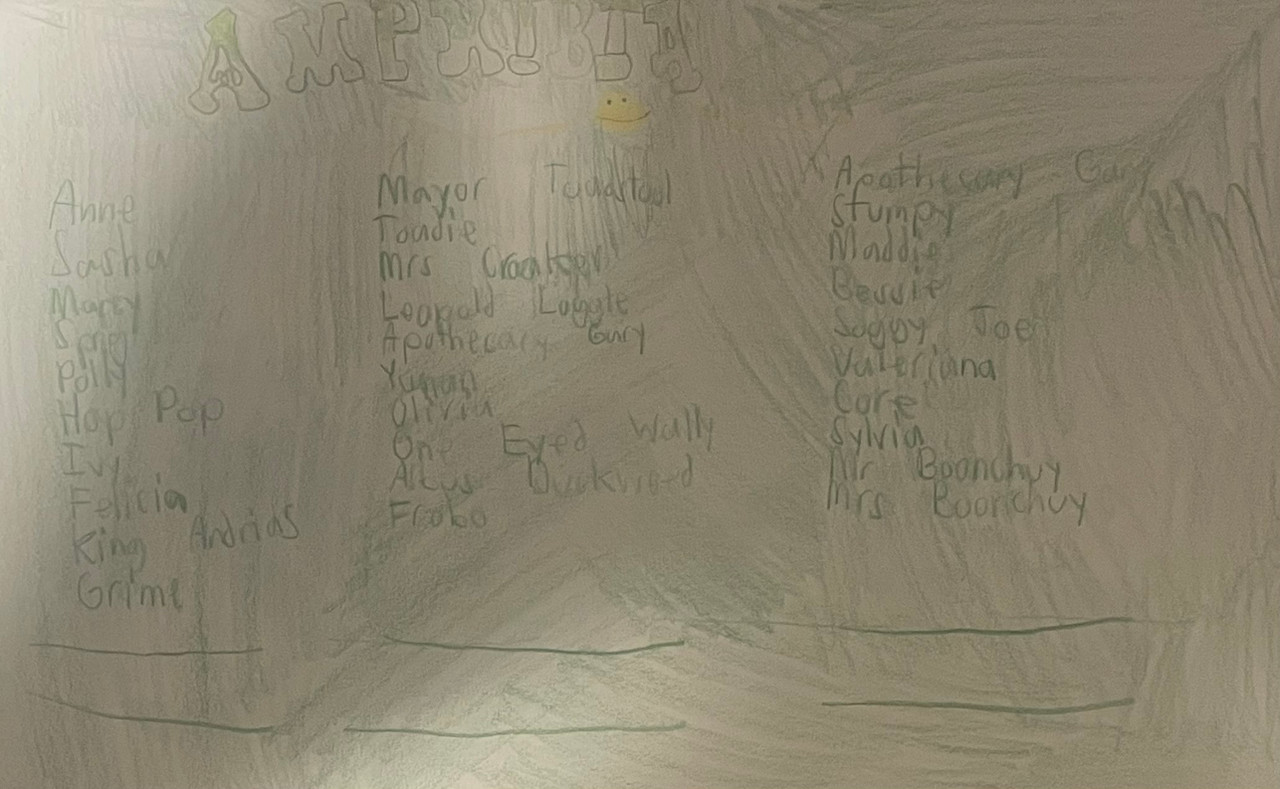 AMPHIBIA
Anne
Sasha
Marcy
Sprig
Polly
Hop Pop
Ivy
Felicia
King Andrias
Grime
Mayor Toadstool
Toadie
Mrs Croaker
Leopold Loggle
Apothecary Gary
Yunan
Olivia
One Eyed Wally
Albus Duckweed
Frobo
Apothecary Gary
Stumpy
Maddie
Bessie
Soggy Joe
Valeriana
Core
Sylvia
Mr Boonchuy
Mrs Boonchuy